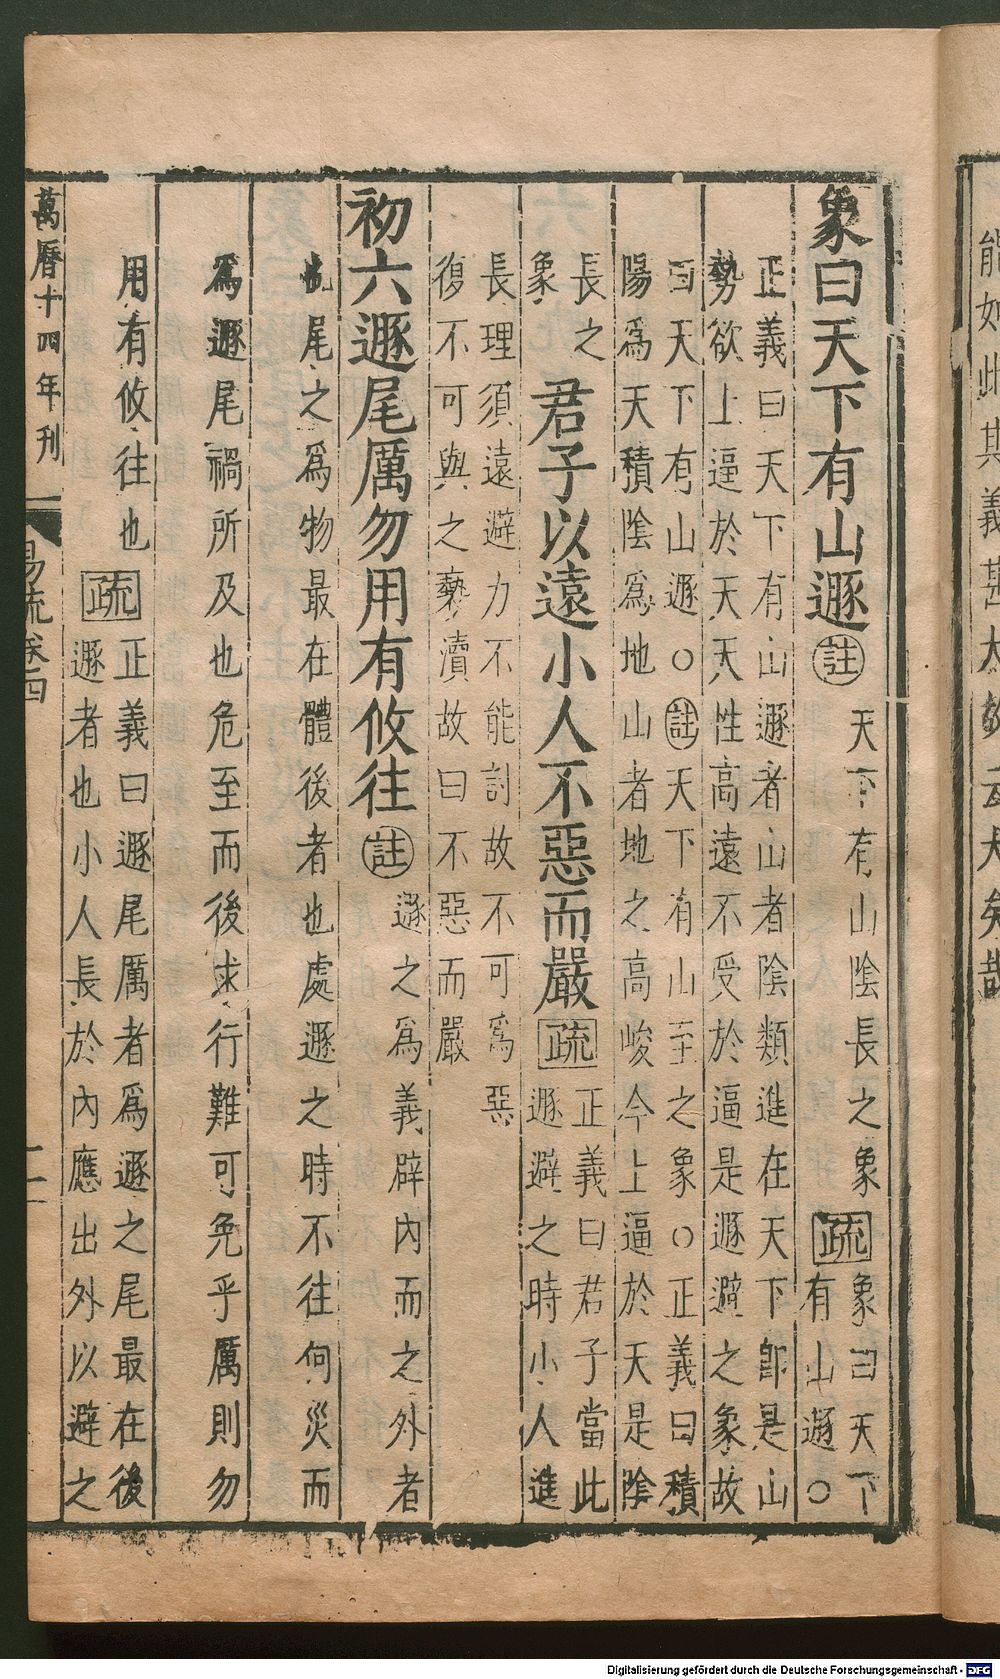 能如此其義甚大故云大矣哉
象曰天下有山遯 註 天下有山陰長之象 疏 象曰天下
有山遯○
正義曰天下有山遯者山者陰類進在天下即是山
勢欲上逼於天天性高遠不受於逼是遯避之象故
曰天下有山遯○註天下有山至之象○正義曰積
陽爲天積陰爲地山者地之高峻今上逼於天是陰
長之
象
君子以遠小人不惡而嚴 疏 正義曰君子當此
遯避之時小人進
長理須遠避力不能討故不可爲惡
復不可與之褻瀆故曰不惡而嚴
初六遯尾厲勿用有攸往 註 遯之爲義辟內而之外者
也尾之爲物最在體後者也處遯之時不往何災而
爲遯尾禍所及也危至而後求行難可免乎厲則勿
用有攸往也 疏 正義曰遯尾厲者爲遯之尾最在後
遯者也小人長於內應出外以避之
萬曆十四年刊
易疏卷四
二
Digitalisierung gefördert durch die Deutsche Forschungsgemeinschaft - DFG